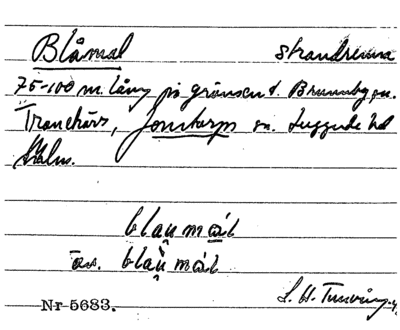 Blåmal strandremsa
75-100 m. lång på gränsen t. Brunnby sn.
Tranekärs, Jonstorps sn. Luggude hd
blau̯ mål
äv. blau̯ mål
Nr 5683.